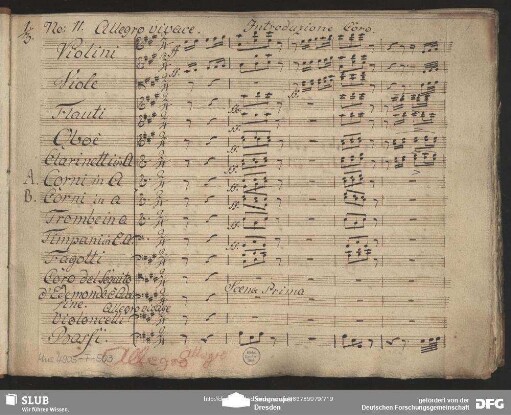 No: 11. Allegro vivace. Introduzione Coro.
Violini
Viole
Flauti
Oboè
Clarinetti in A
A. Corni in A
B. Corni in a
Trombe in a
Timpani in E.A.
Fagotti
Coro del Seguito
Scena Prima
d'Edemondo e Dal
fine. Allegro vivace
Violoncelli
Bassi.
Allegro allegro
SLUB
Wir führen Wissen.
Dresden
gefördert von der
Deutschen Forschungsgemeinschaft
DFG